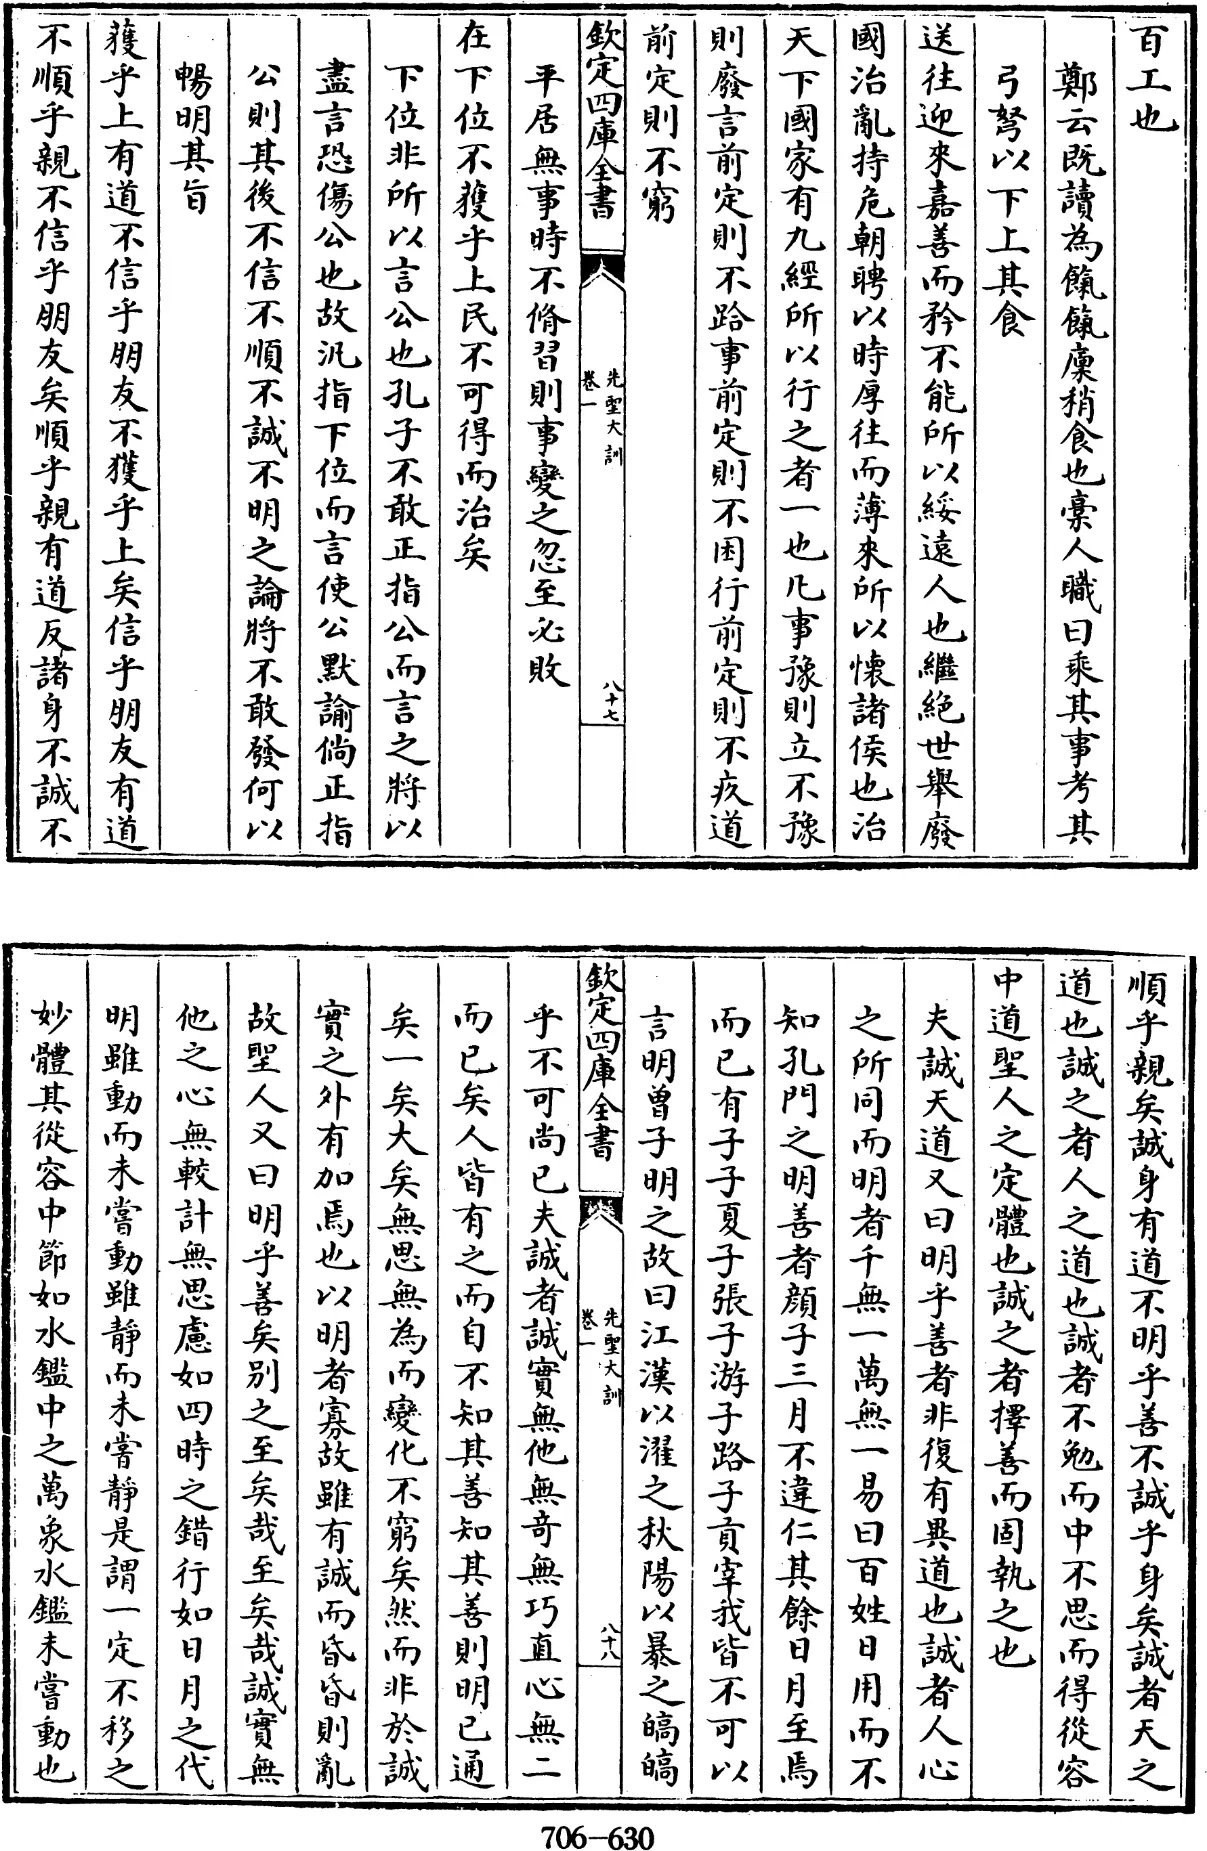 百工也
鄭云既讀為餼餼廩稍食也槀人職曰乘其事考其
弓弩以下上其食
送往迎來嘉善而矜不能所以綏遠人也繼絶世舉廢
國治亂持危朝聘以時厚往而薄來所以懷諸侯也治
天下國家有九經所以行之者一也凡事豫則立不豫
則廢言前定則不跲事前定則不困行前定則不疚道
前定則不窮
欽定四庫全書
先聖大訓
卷一
八十七
平居無事時不脩習則事變之忽至必敗
在下位不獲乎上民不可得而治矣
下位非所以言公也孔子不敢正指公而言之將以
盡言恐傷公也故汎指下位而言使公默諭倘正指
公則其後不信不順不誠不明之論將不敢發何以
暢明其旨
獲乎上有道不信乎朋友不獲乎上矣信乎朋友有道
不順乎親不信乎朋友矣順乎親有道反諸身不誠不
順乎親矣誠身有道不明乎善不誠乎身矣誠者天之
道也誠之者人之道也誠者不勉而中不思而得從容
中道聖人之定體也誠之者擇善而固執之也
夫誠天道又曰明乎善者非復有異道也誠者人心
之所同而明者千無一萬無一易曰百姓日用而不
知孔門之明善者顔子三月不違仁其餘日月至焉
而已有子子夏子張子游子路子貢宰我皆不可以
言明曽子明之故曰江漢以濯之秋陽以暴之皜皜
欽定四庫全書
先聖大訓
卷一
八十八
乎不可尚已夫誠者誠實無他無奇無巧直心無二
而已矣人皆有之而自不知其善知其善則明已通
矣一矣大矣無思無為而變化不窮矣然而非於誠
實之外有加焉也以明者寡故雖有誠而昏昏則亂
故聖人又曰明乎善矣别之至矣哉至矣哉誠實無
他之心無較計無思慮如四時之錯行如日月之代
明雖動而未嘗動雖靜而未嘗靜是謂一定不移之
妙體其從容中節如水鑑中之萬象水鑑未嘗動也
706-630